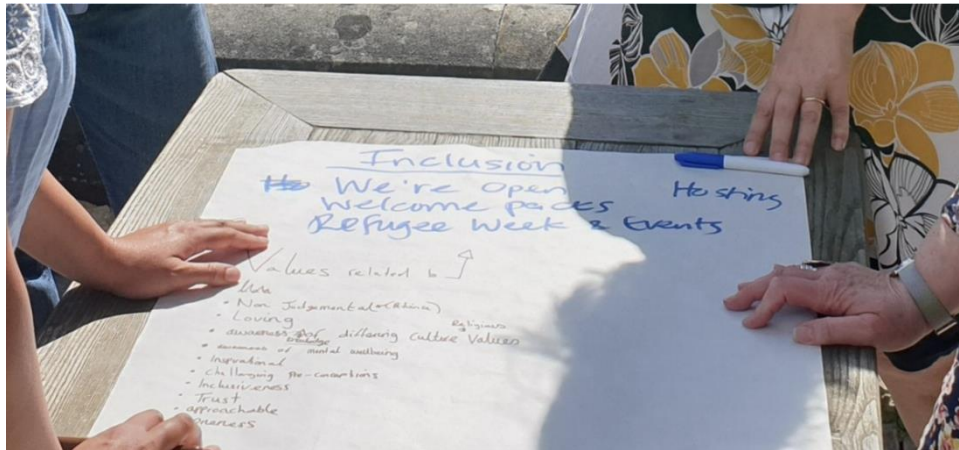 Inclusion
We're Open
Hosting
Welcome packs
Refugee Week & Events
Values related to
• Non Judgemental
• Loving
Religious
• awareness for differing culture Values
knowledge
• awareness of mental wellbeing
• Inspirational
• challenging pre-conceptions
• Inclusiveness
• Trust
• approachable